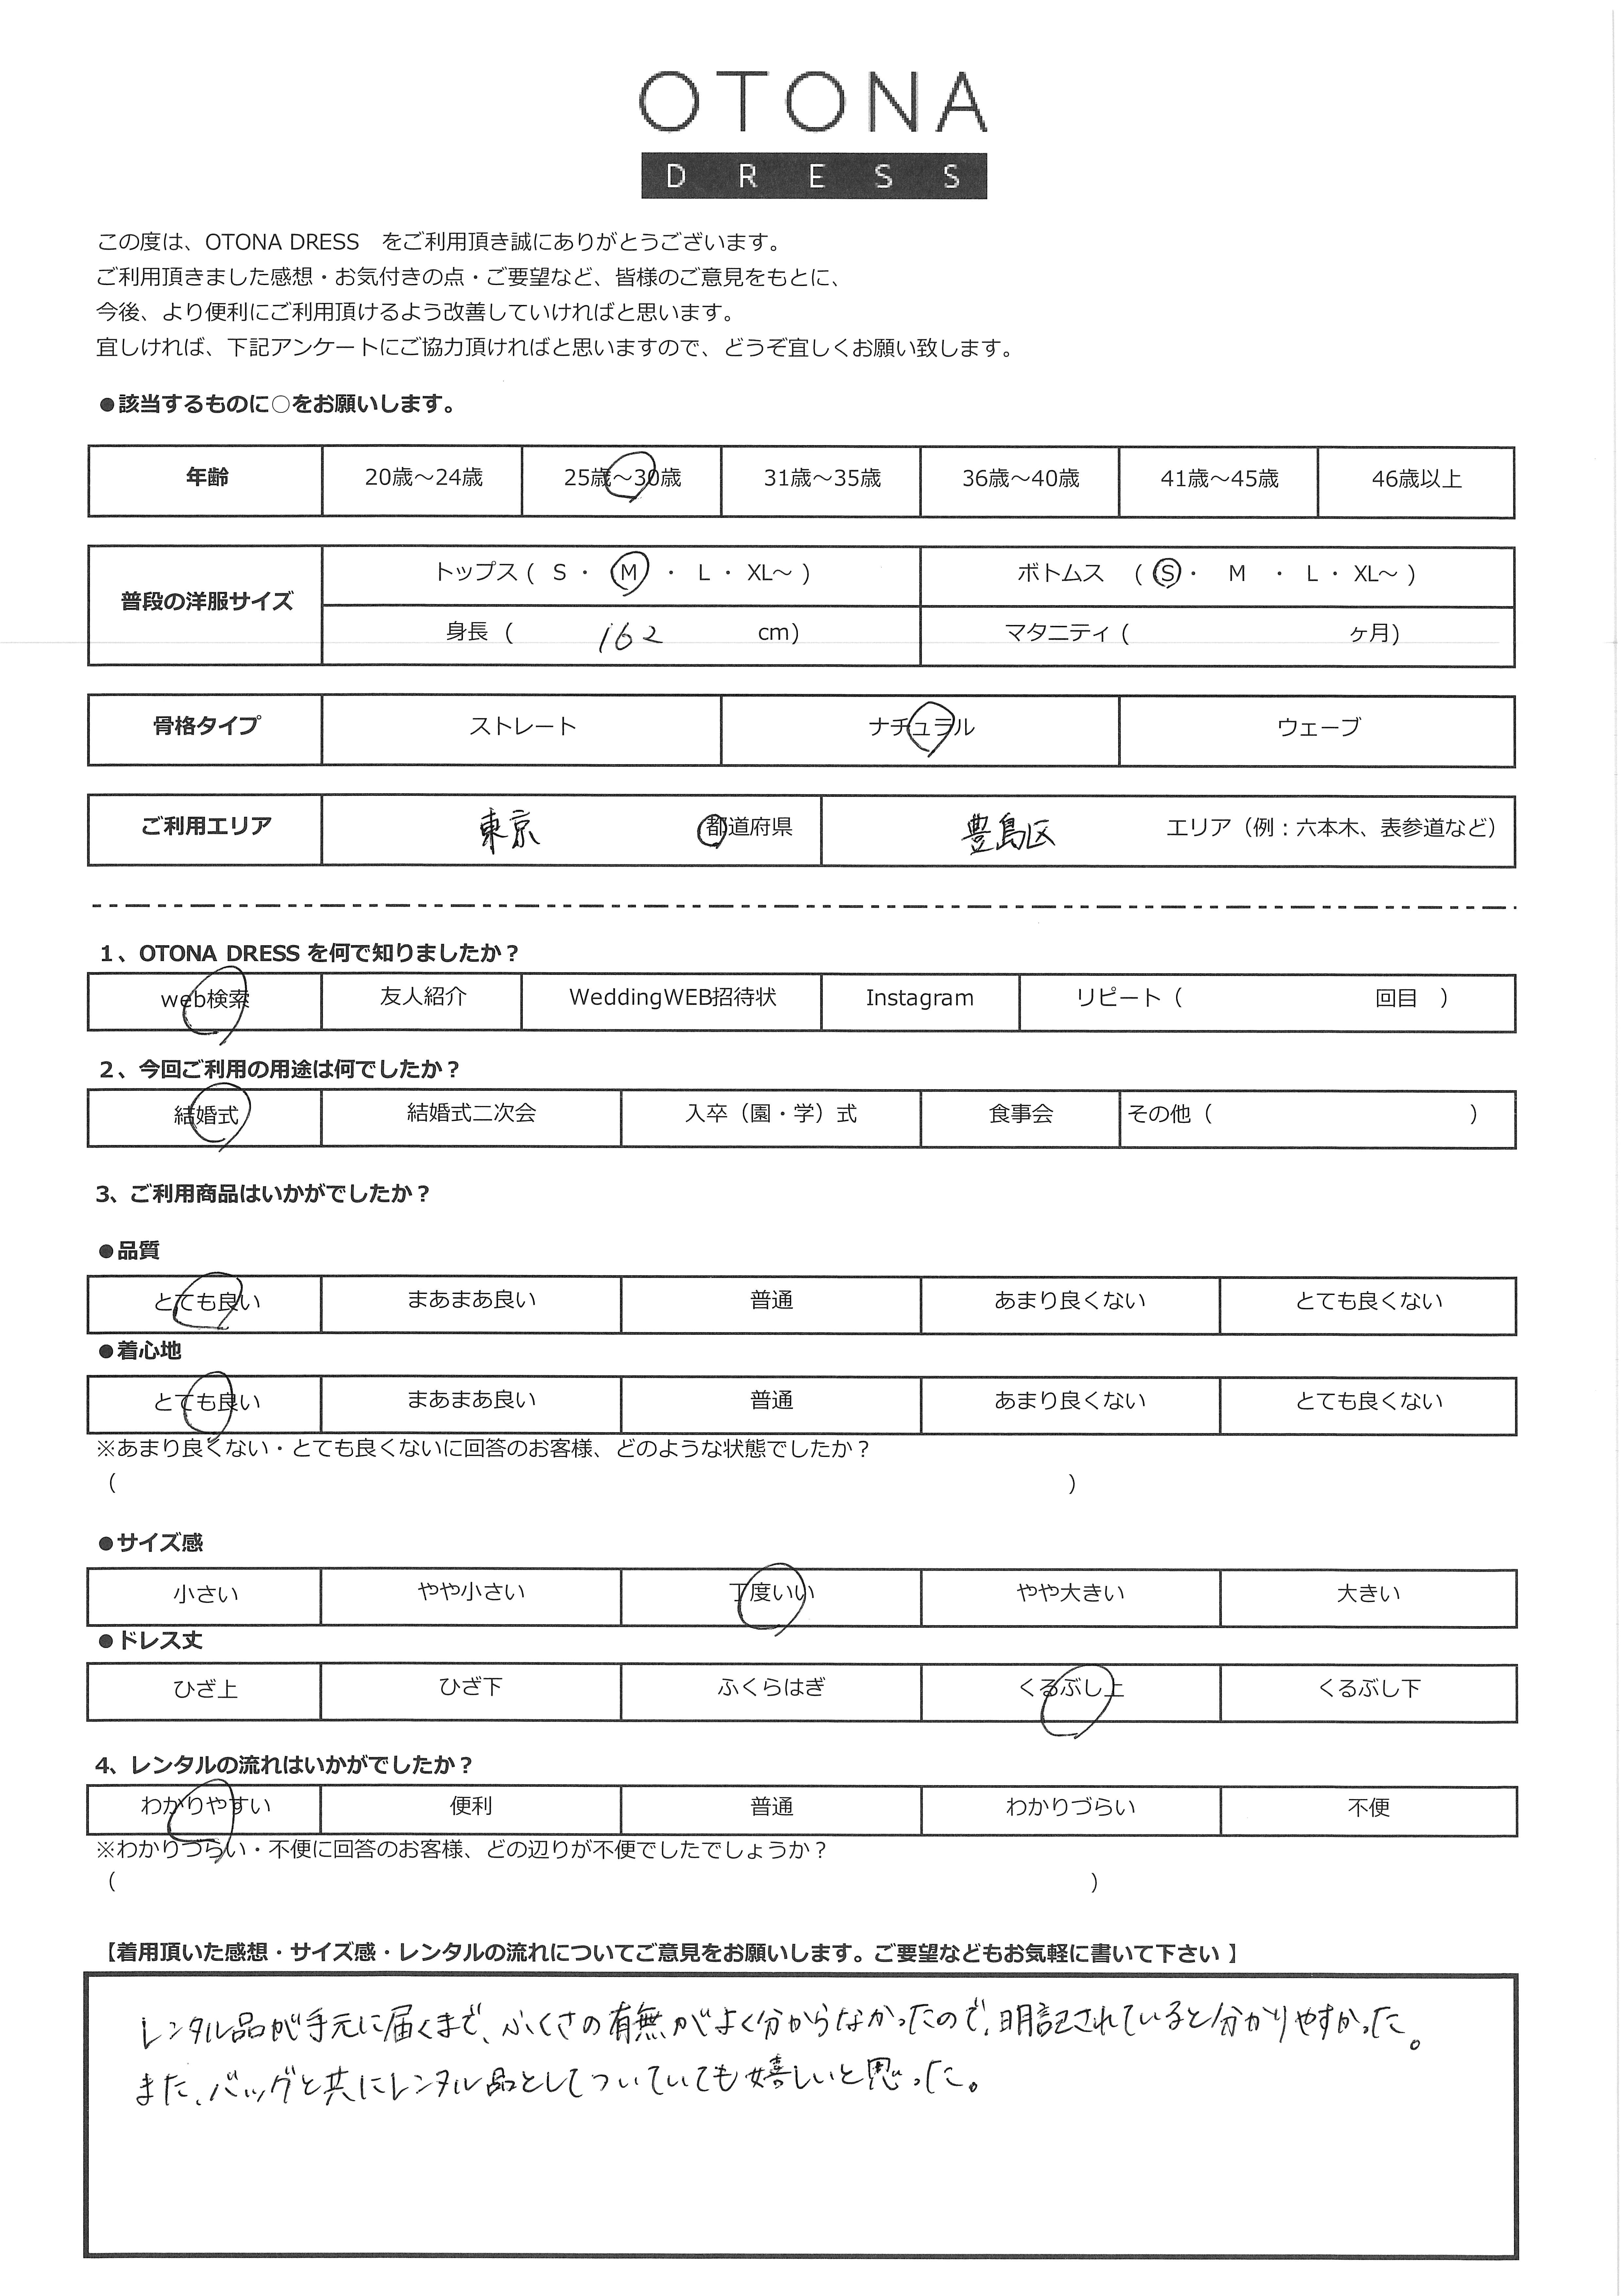 OTONA
DRESS
この度は、OTONA DRESS をご利用頂き誠にありがとうございます。
ご利用頂きました感想・お気付きの点・ご要望など、皆様のご意見をもとに、
今後、より便利にご利用頂けるよう改善していければと思います。
宜しければ、下記アンケートにご協力頂ければと思いますので、どうぞ宜しくお願い致します。
●該当するものに○をお願いします。
年齢 20歳～24歳 25歳～30歳 31歳～35歳 36歳～40歳 41歳～45歳 46歳以上
普段の洋服サイズ トップス ( S ・ M ・ L ・ XL～ ) ボトムス ( S ・ M ・ L ・ XL～ )
身長 ( 162 cm) マタニティ ( ヶ月)
骨格タイプ ストレート ナチュラル ウェーブ
ご利用エリア 東京 都道府県 豊島区 エリア（例：六本木、表参道など）
1、OTONA DRESS を何で知りましたか？
web検索 友人紹介 WeddingWEB招待状 Instagram リピート（ 回目 ）
2、今回ご利用の用途は何でしたか？
結婚式 結婚式二次会 入卒（園・学）式 食事会 その他（ ）
3、ご利用商品はいかがでしたか？
●品質
とても良い まあまあ良い 普通 あまり良くない とても良くない
●着心地
とても良い まあまあ良い 普通 あまり良くない とても良くない
※あまり良くない・とても良くないに回答のお客様、どのような状態でしたか？
（ ）
●サイズ感
小さい やや小さい 丁度いい やや大きい 大きい
●ドレス丈
ひざ上 ひざ下 ふくらはぎ くるぶし上 くるぶし下
4、レンタルの流れはいかがでしたか？
わかりやすい 便利 普通 わかりづらい 不便
※わかりづらい・不便に回答のお客様、どの辺りが不便でしたでしょうか？
（ ）
【着用頂いた感想・サイズ感・レンタルの流れについてご意見をお願いします。ご要望などもお気軽に書いて下さい 】
レンタル品が手元に届くまで、ふくさの有無がよく分からなかったので、明記されていると分かりやすかった。
また、バッグと共にレンタル品としてついていても嬉しいと思った。